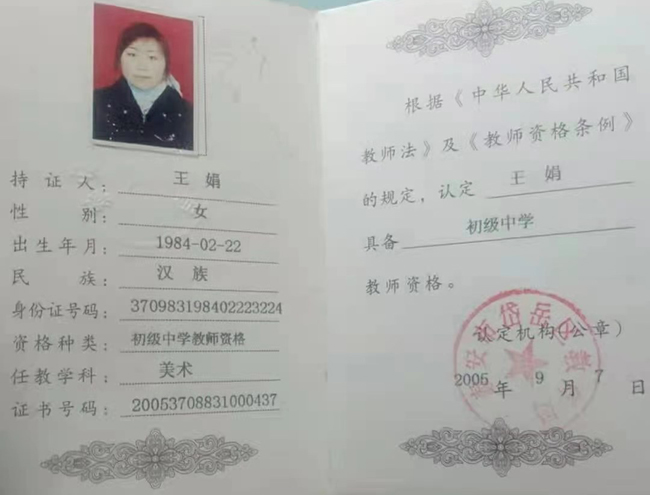 持证人：王娟
性别：女
出生年月：1984-02-22
民族：汉族
身份证号码：370983198402223224
资格种类：初级中学教师资格
任教学科：美术
证书号码：20053708831000437
根据《中华人民共和国
教师法》及《教师资格条例》
的规定，认定 王娟
具备 初级中学
教师资格。
认定机构（公章）
2005 年 9 月 7 日